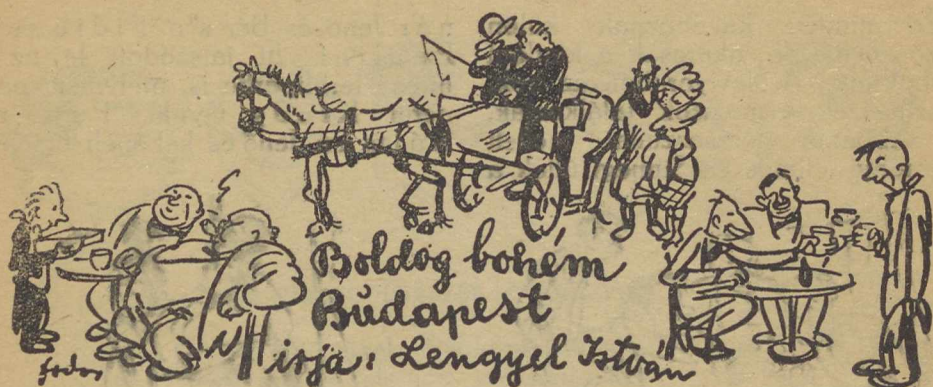 Boldog bohém
Budapest
irja: Lengyel István